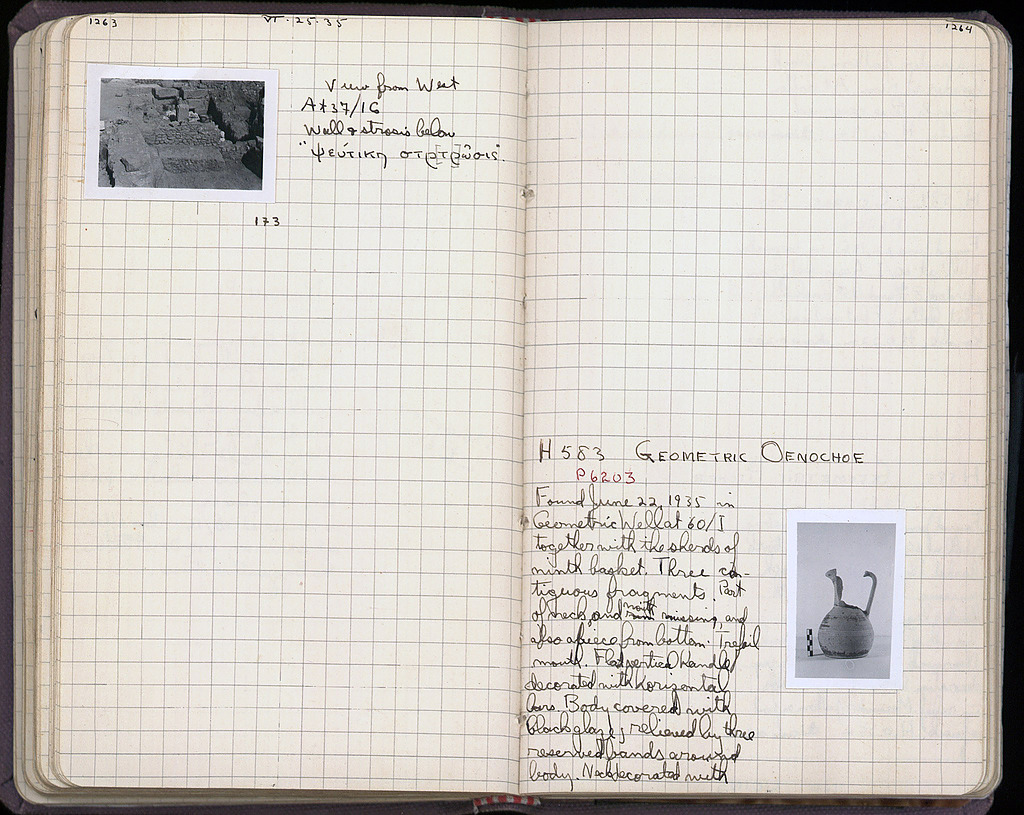 1263
VI-25-35
View from West
A*37/16
Wall & strosis below
"ψεύτικη στρ[τρ]ῶσις".
173
1264
H 583 GEOMETRIC OENOCHOE
P6203
Found June 22, 1935 in
Geometric Well at 60/I
together with the sherds of
ninth basket. Three con-
tiguous fragments. Part
of neck and mouth missing, and
also a piece from bottom. Trefoil
mouth. Flat vertical handle
decorated with horizontal
bars. Body covered with
black glaze, relieved by three
reserved bands around
body. Neck decorated with